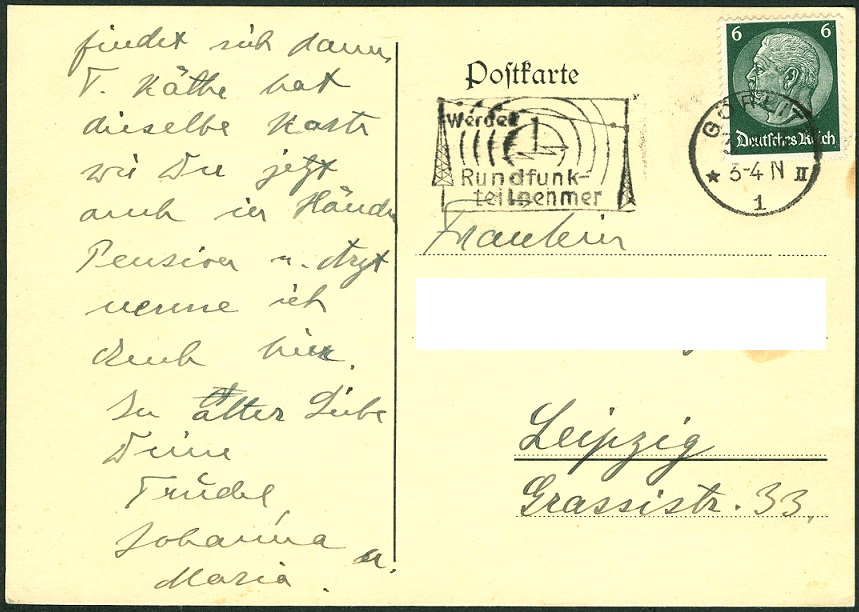 findet sich dann,
T. Käthe hat
dieselbe Karte
wie Du jetzt
auch in Händen
Pension u. Arzt
nenne ich
Euch hier.
In alter Liebe
Deine
Trudel,
Johanna u.
Maria.
Postkarte
Werdet
Rundfunk-
teilnehmer
6 6
Deutsches Reich
GÖRLITZ
3-4 N II
1
Fräulein
Leipzig
Grassistr. 33,